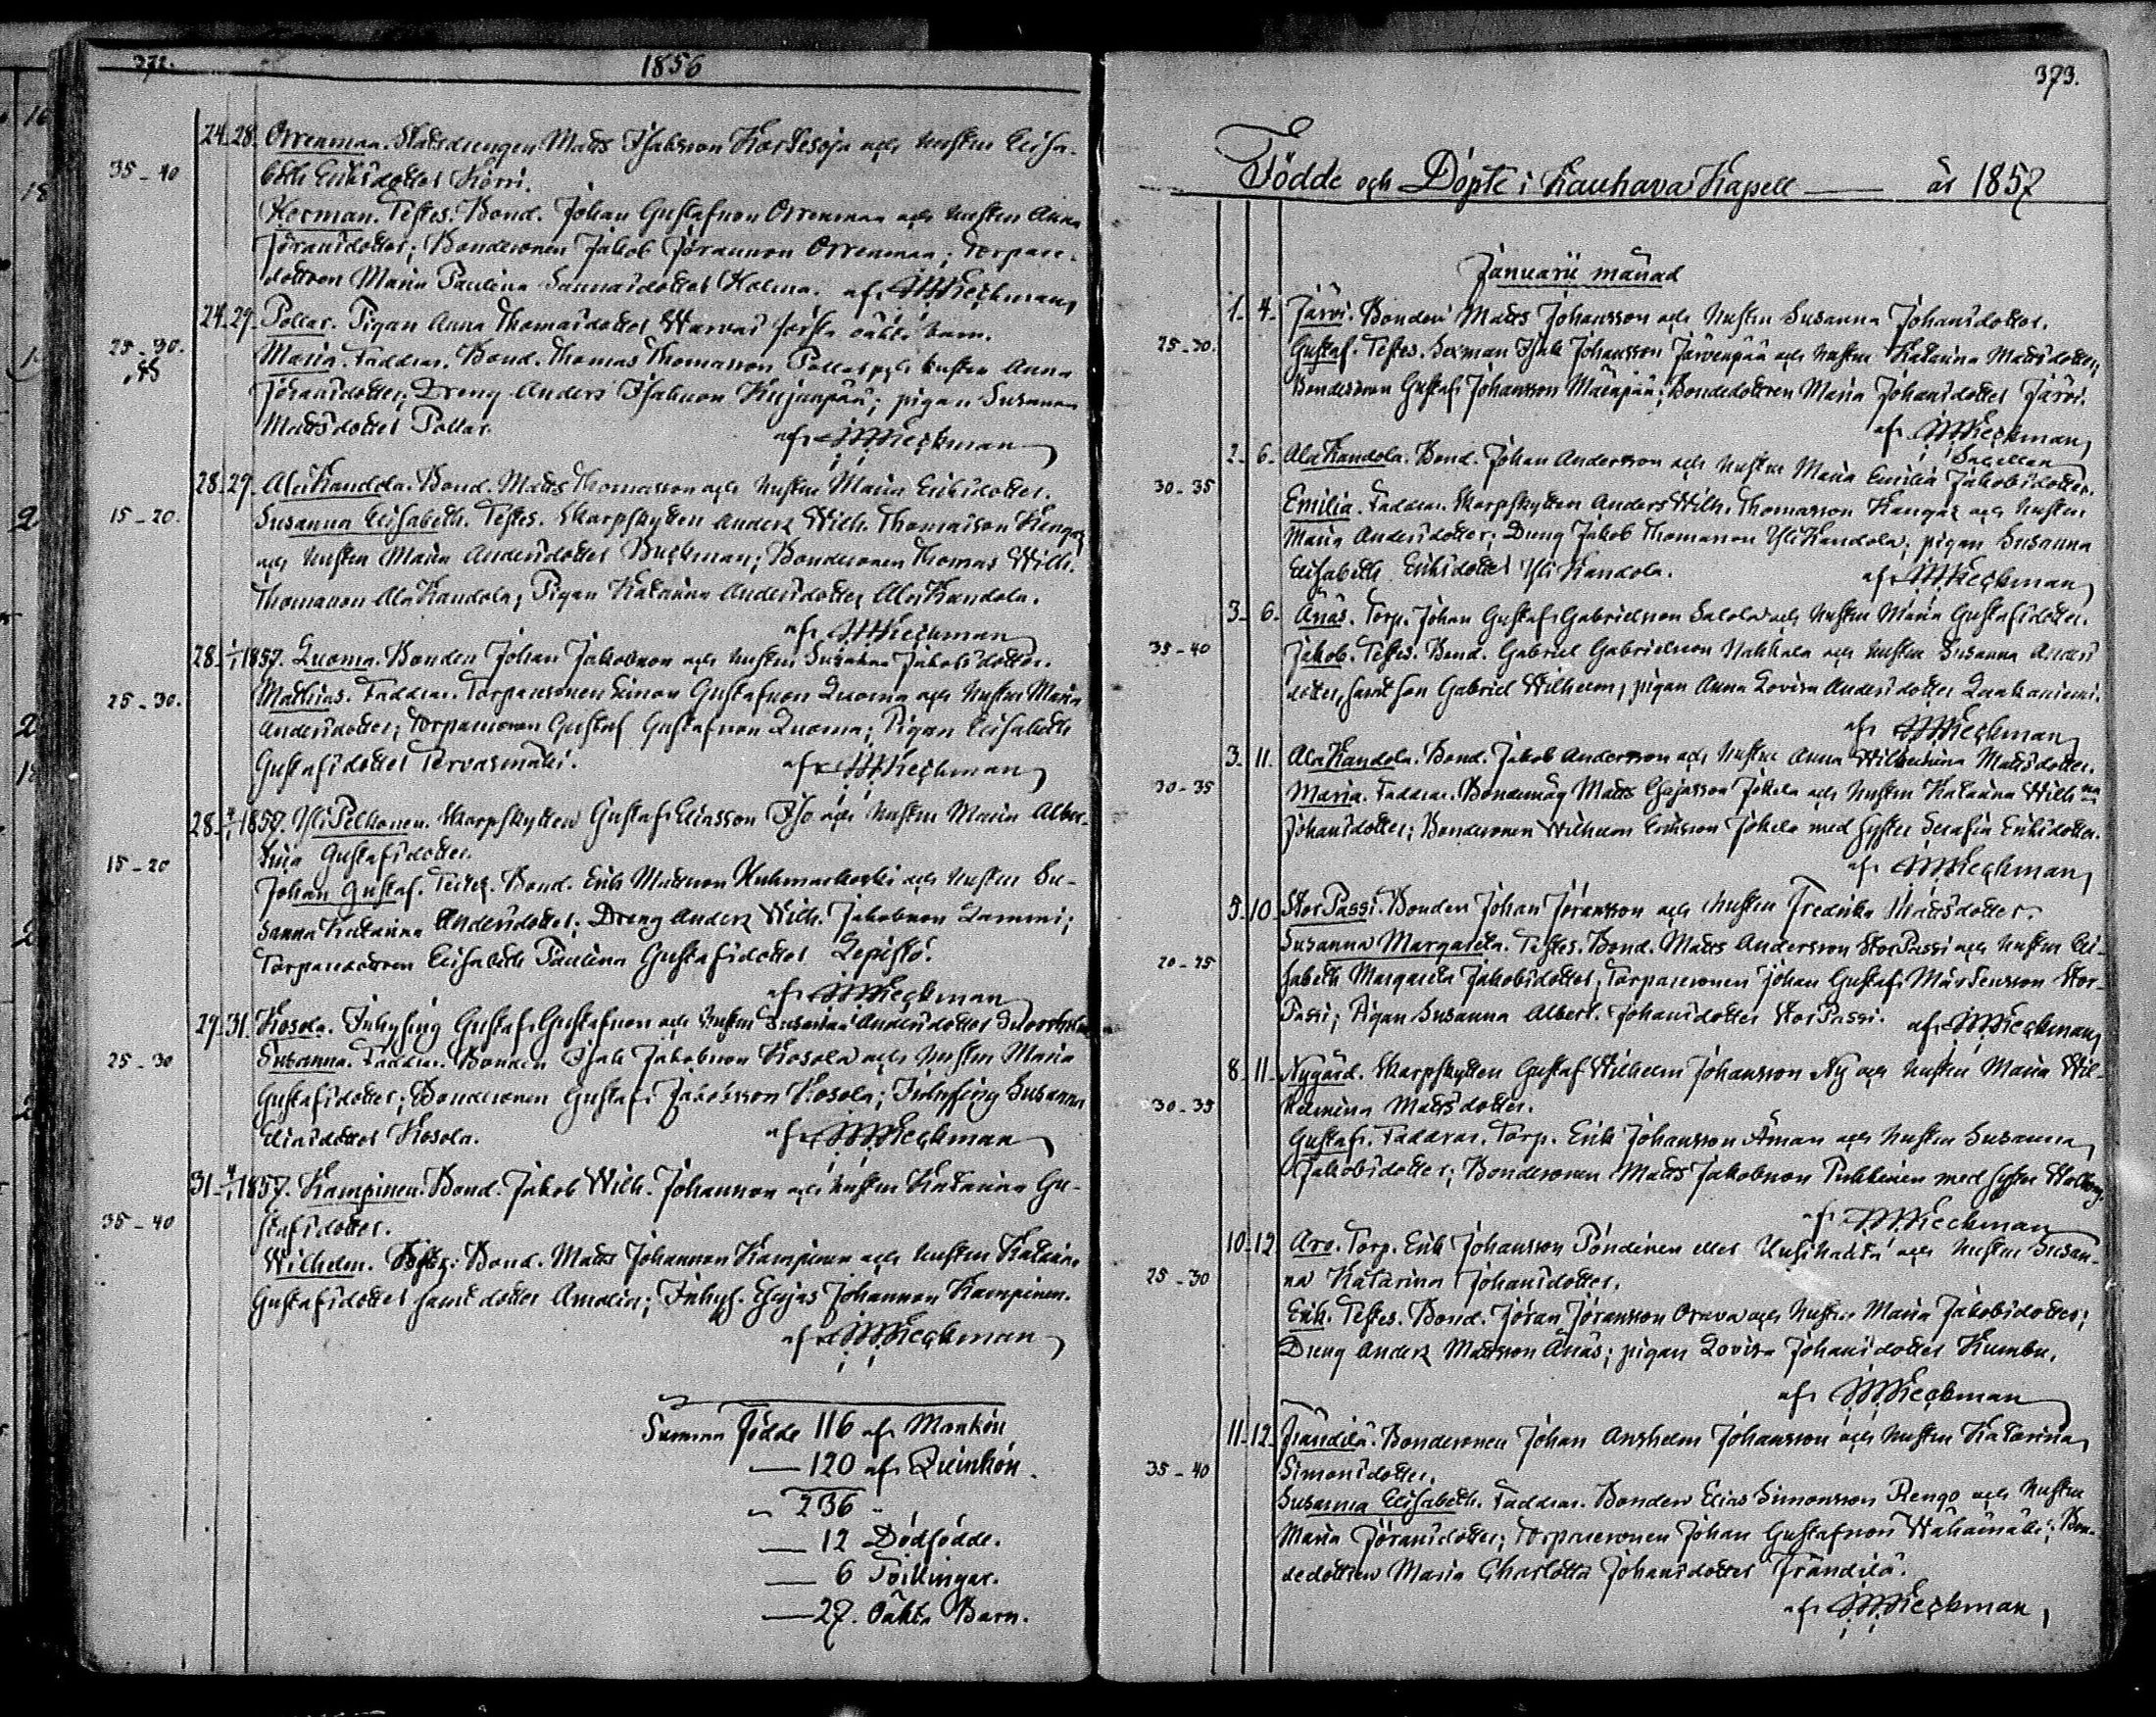 372.
1856
24. 28. Orrenmaa. Statsdrengen Matts Isaksson Kortesoja och hustru Elisa-
35-40
beth Eriksdotter Körri.
Herman. Testes: Bond. Johan Gustafsson Orrenmaa och hustru Anna
Jöransdotter; Bondesonen Jakob Jöransson Orrenmaa; Torpare-
dottren Maria Paulina Sannasdotter Holma. af W. Keckman
24. 29. Pollar. Pigan Anna Thomasdotter Warvas första oäkta barn.
25-30.
Maria. Faddrar. Bond. Thomas Thomasson Pollar och hustru Anna
Jöransdotter; Dreng Anders Isaksson Kujanpää; pigan Susanna
Mattsdotter Pollar.
af W. Keckman
28. 29. AlaKandola. Bond. Matts Thomasson och hustru Maria Eriksdotter.
15-20.
Susanna Elisabeth. Testes. Skarpskytten Anders Wilh. Thomasson Kangas
och hustru Maria Andersdotter Buckman; Bondesonen Thomas Wilh.
Thomasson AlaKandola; Pigan Katarina Andersdotter AlaKandola.
af W. Keckman
28. 1/1 1857. Luoma. Bonden Johan Jakobsson och hustru Susanna Jakobsdotter.
25-30.
Mathias. Faddrar. Torparesonen Simon Gustafsson Luoma och hustru Maria
Andersdotter; Torparesonen Gustaf Gustafsson Luoma; Pigan Elisabeth
Gustafsdotter Tervasmäki.
af W. Keckman
28. 4/1 1857. YliPelkonen. Skarpskytten Gustaf Eliasson Iso och hustru Maria Alber-
tina Gustafsdotter.
15-20
Johan Gustaf. Testes. Bond. Erik Mattsson Kuhmarkoski och hustru Su-
sanna Katarina Andersdotter; Dreng Anders Wilh. Jakobsson Lammi;
Torparedottren Elisabeth Paulina Gustafsdotter Lepistö.
af W. Keckman
29. 31. Kosola. Inhysing Gustaf Gustafsson och hustru Susanna Andersdotter
25-30
Susanna. Faddrar. Bonden Isak Jakobsson Kosola och hustru Maria
Gustafsdotter; Bondesonen Gustaf Jakobsson Kosola; Inhysing Susanna
Eliasdotter Kosola.
af W. Keckman
31. 4/1 1857. Kampinen. Bond. Jakob Wilh. Johansson och hustru Katarina Gu-
stafsdotter.
35-40
Wilhelm. Testes: Bond. Matts Johansson Kampinen och hustru Katarina
Gustafsdotter samt dotter Amalia; Inhys. Esajas Johansson Kampinen.
af W. Keckman
Summa födde 116 af Mankön
— 120 af Qvinkön.
236
— 12 Dödfödde.
— 6 Tvillingar.
— 27. Oäkta Barn.
373.
Födde och Döpte i Kauhava Kapell — år 1857
Januarii månad
1. 4. Järvi. Bonden Matts Johansson och hustru Susanna Johansdotter.
25-30.
Gustaf. Testes. Sexman Isak Johansson Järvenpää och hustru Katarina Mattsdotter;
Bondesonen Gustaf Johansson Mäenpää; Bondedottren Maria Johansdotter Järvi.
af W. Keckman
2. 6. AlaKandola. Bond. Johan Andersson och hustru Maria Emilia Jakobsdotter.
30-35
Emilia. Faddrar. Skarpskytten Anders Wilh. Thomasson Kangas och hustru
Maria Andersdotter; Dreng Jakob Thomasson YliKandola; pigan Susanna
Elisabeth Eriksdotter YliKandola.
af W. Keckman
3. 6. Änäs. Torp. Johan Gustaf Gabrielsson Salola och hustru Maria Gustafsdotter.
35-40
Jakob. Testes. Bond. Gabriel Gabrielsson Nahkala och hustru Susanna Anders
dotter, samt son Gabriel Wilhelm; pigan Anna Lovisa Andersdotter Laakaniemi.
af W. Keckman
3. 11. AlaKandola. Bond. Jakob Andersson och hustru Anna Wilhelmina Mattsdotter.
30-35
Maria. Faddrar. Bondemåg Matts Esajasson Jokela och hustru Katarina Wilh:na
Johansdotter; Bondesonen Wilhelm Eriksson Jokela med syster Serafia Eriksdotter.
af W. Keckman
5. 10. StorPassi. Bonden Johan Jöransson och hustru Fredrika Mattsdotter.
20-25
Susanna Margareta. Testes. Bond. Matts Andersson StorPassi och hustru Eli-
sabeth Margareta Jakobsdotter; Torparesonen Johan Gustaf Mårtensson Stor-
Passi; Pigan Susanna Albert. Johansdotter StorPassi. af W. Keckman
8. 11. Nygård. Skarpskytten Gustaf Wilhelm Johansson Ny och hustru Maria Wil-
helmina Mattsdotter.
30-35
Gustaf. Faddrar. Torp. Erik Johansson Åman och hustru Susanna
Jakobsdotter; Bondesonen Matts Jakobsson Pukkinen med syster
af W. Keckman
10. 12. Aro. Torp. Erik Johansson Pöndinen eller Uusihaka och hustru Susan-
25-30
na Katarina Johansdotter.
Erik. Testes. Bond. Jöran Jöransson Orava och hustru Maria Jakobsdotter;
Dreng Anders Mattsson Änäs; pigan Lovisa Johansdotter Kumbu.
af W. Keckman
11. 12. Frändilä. Bondesonen Johan Anshelm Johansson och hustru Katarina
Simonsdotter.
35-40
Susanna Elisabeth. Faddrar. Bonden Elias Simonsson Rengo och hustru
Maria Jöransdotter; Torparesonen Johan Gustafsson Wähämäki; Bon-
dedottren Maria Charlotta Johansdotter Frändilä.
af W. Keckman